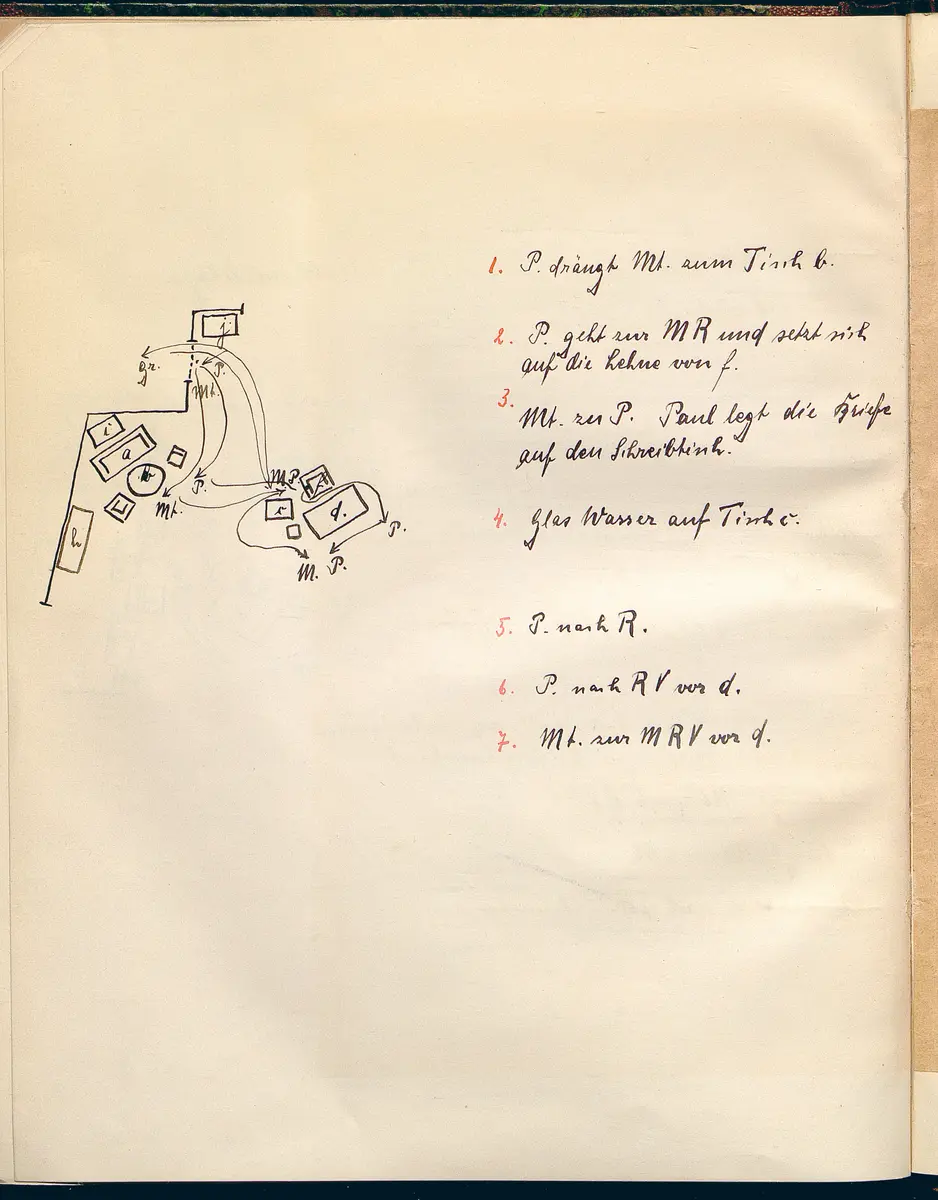 j.
gr.
P.
Mt.
i
a
b
P.
Mt.
h
M. P.
f
c
d.
P.
M. P.
1. P. drängt Mt. zum Tisch b.
2. P. geht zur MR und setzt sich
auf die Lehne von f.
3. Mt. zu P. Paul legt die Briefe
auf den Schreibtisch.
4. Glas Wasser auf Tisch c.
5. P. nach R.
6. P. nach RV vor d.
7. Mt. zur MRV vor d.